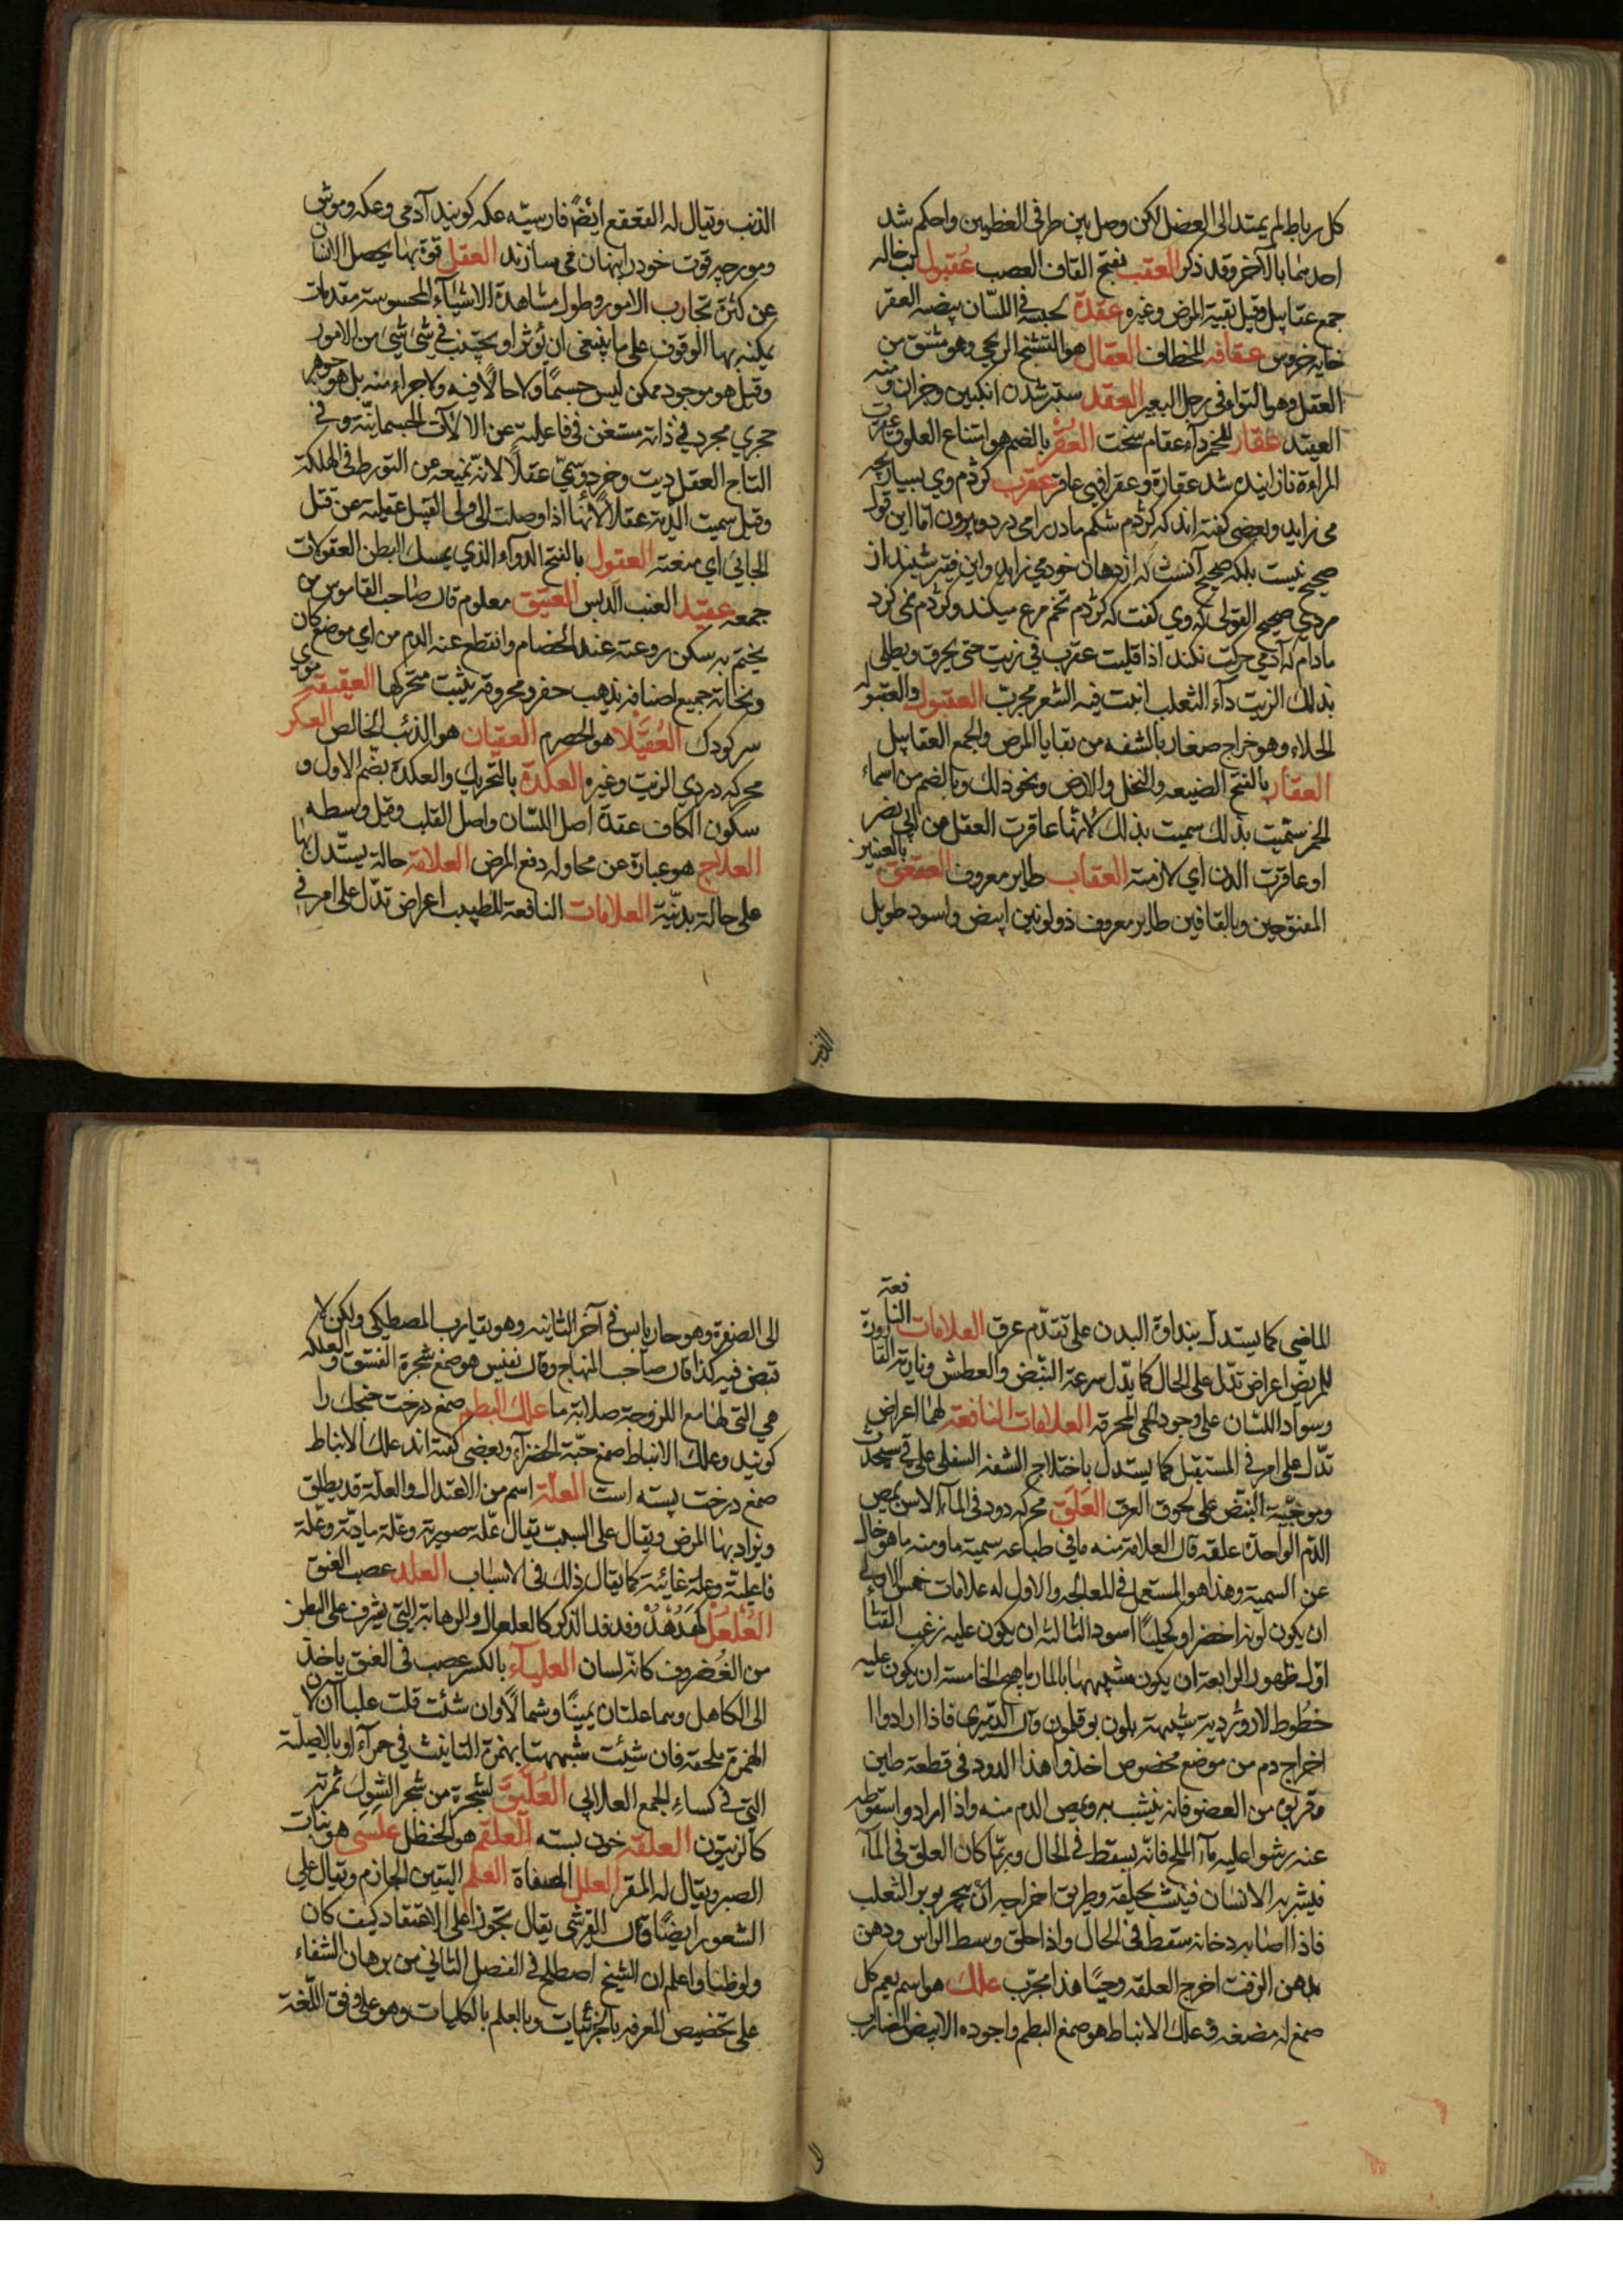 كل رباط لم يمتد الى العضل لكن وصل بين طرفى العظمين واحكم شد
احدهما بالآخر وقد ذكر العقب بفتح القاف العصب عُقبول تب خاله
جمع عقابيل وقيل بقية المرض وغيره عقدة كحبسه فى اللسان بيضه العقر
خايه خروس عقافه للخطاف العقال هو التشنج الريحى وهو مشتق من
العقل وهو التواء فى رجل البعير العقد ستبر شدن انكبين وجزان ومنه
العقيد عقار للخمر داء عقام سخت العُقر بالضم هو امتناع العلوق عقرت
المراءة نازاينده شد عقارة وعقرا فهى عاقر عقرب كژدم وى بسيار بچه
مى زايد وبعضى كفته اند كه كژدم شكم مادر را مى درد وبيرون اما اين قول
صحيح نيست بلكه صحيح آنست كه از دهان خود مى زايد واين فقير شنيد از
مردى صحيح القول كه وى كفت كه كژدم تخم مرغ ميكند وكژدم نمى كزد
مادام كه آدمى حركت نكند اذا قليت عقرب فى زيت حتى يحرق ويطلى
بذلك الزيت داء الثعلب انبت فيه الشعر مجرب العقبول والعقبوله
الحلاء وهو خراج صغار بالشفه من بقايا المرض والجمع العقابيل
العقار بالفتح الضيعه والنخل والارض ونحو ذلك وبالضم من اسماء
الخمر سميت بذلك سميت بذلك لانها عاقرت العقل من ابى نصر
او عاقرت الدن اى لازمته العقاب طاير معروف العقعق بالعينين
المفتوحين وبالقافين طاير معروف ذو لونين ابيض واسود طويل
الذنب
الذنب ويقال له القعقع ايضًا فارسيّه عكه كويند آدمى وعكه وموش
ومورچه قوت خود را پنهان مى سازند العقل قوة بها يحصل الانسان
عن كثرة تجارب الامور وطول مشاهدة الاشياء المحسوسة مقدمات
يمكنه بها الوقوف على ما ينبغى ان يؤثر او يجتنب فى شئ شئ من الامور
وقيل هو موجود ممكن ليس جسمًا ولا حالًا فيه ولا جزاء منه بل هو جوهر
مجرد فى ذاته مستغن فى فاعليته عن الالآت الجسمانيّة وفى
التاج العقل ديت وخرد وسمى عقلًا لانه يمنعه عن التورط فى الهلكة
وقيل سميت الدية عقلًا لانها اذا وصلت الى ولى القتيل عقلته عن قتل
الجانى اى منعته العقول بالفتح الدواء الذى يمسك البطن العقولات
جمعه عقيد العنب الدبس العقيق معلوم قال صاحب القاموس من
يختم به سكن روعته عند الخصام وانقطع عنه الدم من اى موضع كان
ونخاتة جميع اصنافه يذهب حفر ومحروقه يثبت متحركها العقيقه موى
سر كودك العُقيَّلا هو الحصرم العقيان هو الذهب الخالص العكر
محركه دردى الزيت وغيره العكدة بالتحريك والعكدة بضم الاول و
سكون الكاف عقدة اصل اللسان واصل القلب وقيل وسطه
العلاج هو عبارة عن محاوله دفع المرض العلامة حالة يستدل بها
على حالة بدنية العلامات النافعة للطبيب اعراض تدل على امر فى
الماضى كما يستدل بنداوة البدن على تقدّم عرق العلامات النافعة
للمريض اعراض تدل على الحال كما يدل سرعة النبض والعطش ونارية القارورة
وسواد اللسان على وجود الحمى المحرقه العلامات النافعة لهما اعراض
تدل على امر فى المستقبل كما يستدل باختلاج الشفه السفلى على قى سيحدث
وموجيّة النبض على لحوق العرق العَلَق محركه دود فى الماء الاسن يمص
الدم الواحدة علقه قال العلامة منه ما فى طباعه سمية ما ومنه ما هو خال
عن السمية وهذا هو المستعمل فى المعالجه والاول له علامات خمس الاولى
ان يكون لونه اخضر او كحليًا اسود الثالثه ان يكون عليه زغب القثأ
اول ظهور الرابعة ان يكون مشبهها بالمارماهيج الخامسة ان يكون عليه
خطوط لازوردية شبيهة بلون بوقلمون وقال الدميرى فاذا ارادوا
اخراج دم من موضع مخصوص اخذوا هذا الدود فى قطعة طين
وقربوه من العضو فانه ينشب به ويمص الدم منه واذا ارادوا اسقوطه
عنه رشوا عليه مآء الملح فانه يسقط فى الحال وربما كان العلق فى المآء
فيشربه الانسان فينشب بحلقه وطريق اخراجه ان يبخر بوبر الثعلب
فاذا اصابه دخانه سقط فى الحال واذا حلق وسط الراس ودهن
بدهن الزفت اخرج العلقه وحيًا هذا مجرّب علك هو اسم يعم كل
صمغ له مضغه و علك الانباط هو صمغ البطم واجوده الابيض الضارب
الى
الى الصفرة وهو حار يابس فى آخر الثانيه وهو يقارب المصطكى ولكن لا
قبض فيه كذا قال صاحب المنهاج وقال نفيس هو صمغ شجرة الفستق والعلكه
هى التى لها مع اللزوجة صلابة ما علك البطم صمغ درخت خنجك را
كويند وعلك الانباط صمغ حبّة الخضرآء وبعضى كفته اند علك الانباط
صمغ درخت پسته است العلّة اسم من الاعتدال والعلة قد يطلق
ويراد بها المرض ويقال على السبب يقال علّة صورية وعلّة مادّية وعلّة
فاعليّة وعلة غائية كما يقال ذلك فى الاسباب العلد عصب العنق
العُلْعُل كهُدْهُدْ وفدفد الذكر كالعلعال والرهابة التى يشرف على البطن
من الغُضروف كانه لسان العلباء بالكسر عصب فى العنق ياخذ
الى الكاهل وهما علتان يمينًا وشمالًا وان شئت قلت علبا آن لان
الهمزة ملحقة فان شئت شبهتها بهمزة التانيث فى حمرآء او بالاصليّة
التى فى كساء الجمع العلابى العُلَّيق لشجرة من شجر الشوك ثمرته
كالزيتون العلقه خون بسته العلقم هو الحنظل علسى هو نبات
الصبر ويقال له المقر العلل المصفاة العلم اليقين الجازم ويقال على
الشعور ايضًا وقال القرشى يقال تجوز اعلى الاعتقاد كيف كان
ولو ظنا واعلم ان الشيخ اصطلح فى الفصل الثانى من برهان الشفاء
على تخصيص المعرفه بالجزئيات وبالعلم بالكليات وهو على وفق اللغة